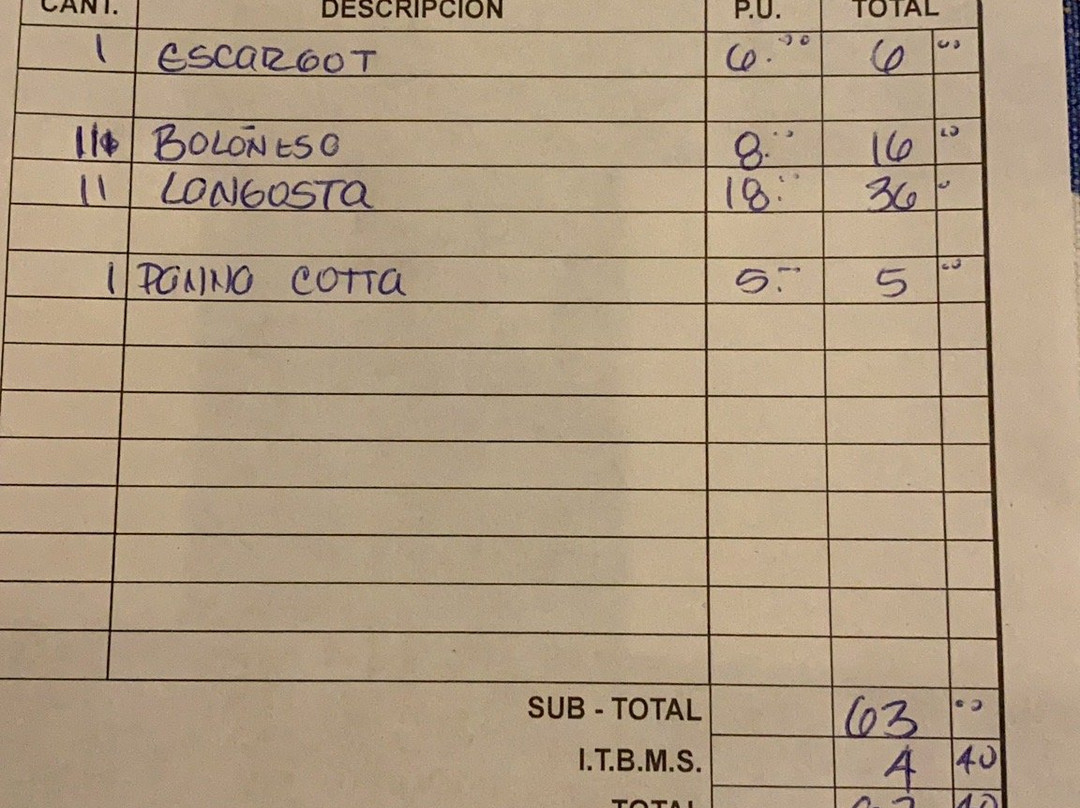 CANT. DESCRIPCION P.U. TOTAL
1 ESCARGOT 6.00 6 00
11 BOLOÑESO 8.00 16 00
11 LONGOSTA 18.00 36 00
1 PONNO COTTA 5.00 5 00
SUB - TOTAL 63 00
I.T.B.M.S. 4 40
TOTAL